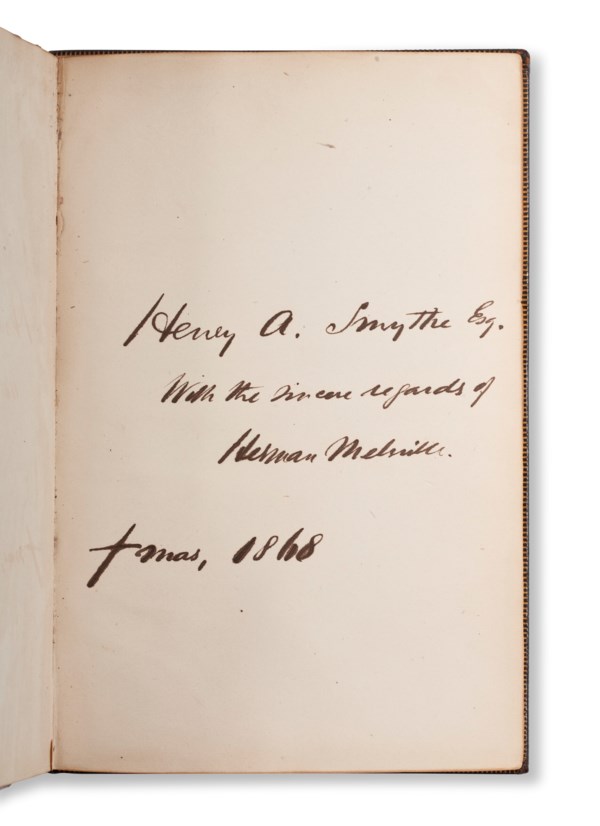 Henry A. Smythe Esq.
With the sincere regards of
Herman Melville.
Xmas, 1868